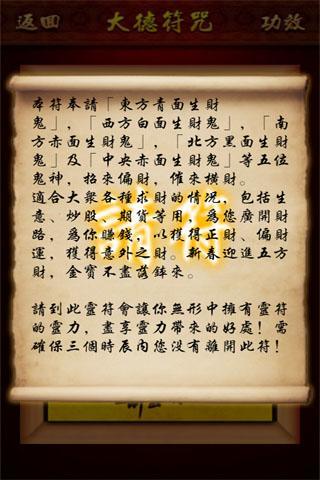 返回 大德符咒 功效
本符奉請「東方青面生財
鬼」，「西方白面生財鬼」，「南
方赤面生財鬼」，「北方黑面生財
鬼」及「中央赤面生財鬼」等五位
鬼神，招來偏財，催來橫財。
適合大眾各種求財的情況，包括生
意、炒股、期貨等用，為您廣開財
路，為你賺錢，以獲得正財、偏財
運，獲得意外之財。新春迎進五方
財，金寶不盡落鋒來。
請符
請到此靈符會讓你無形中擁有靈符
的靈力，盡享靈力帶來的好處！需
確保三個時辰內您沒有離開此符！